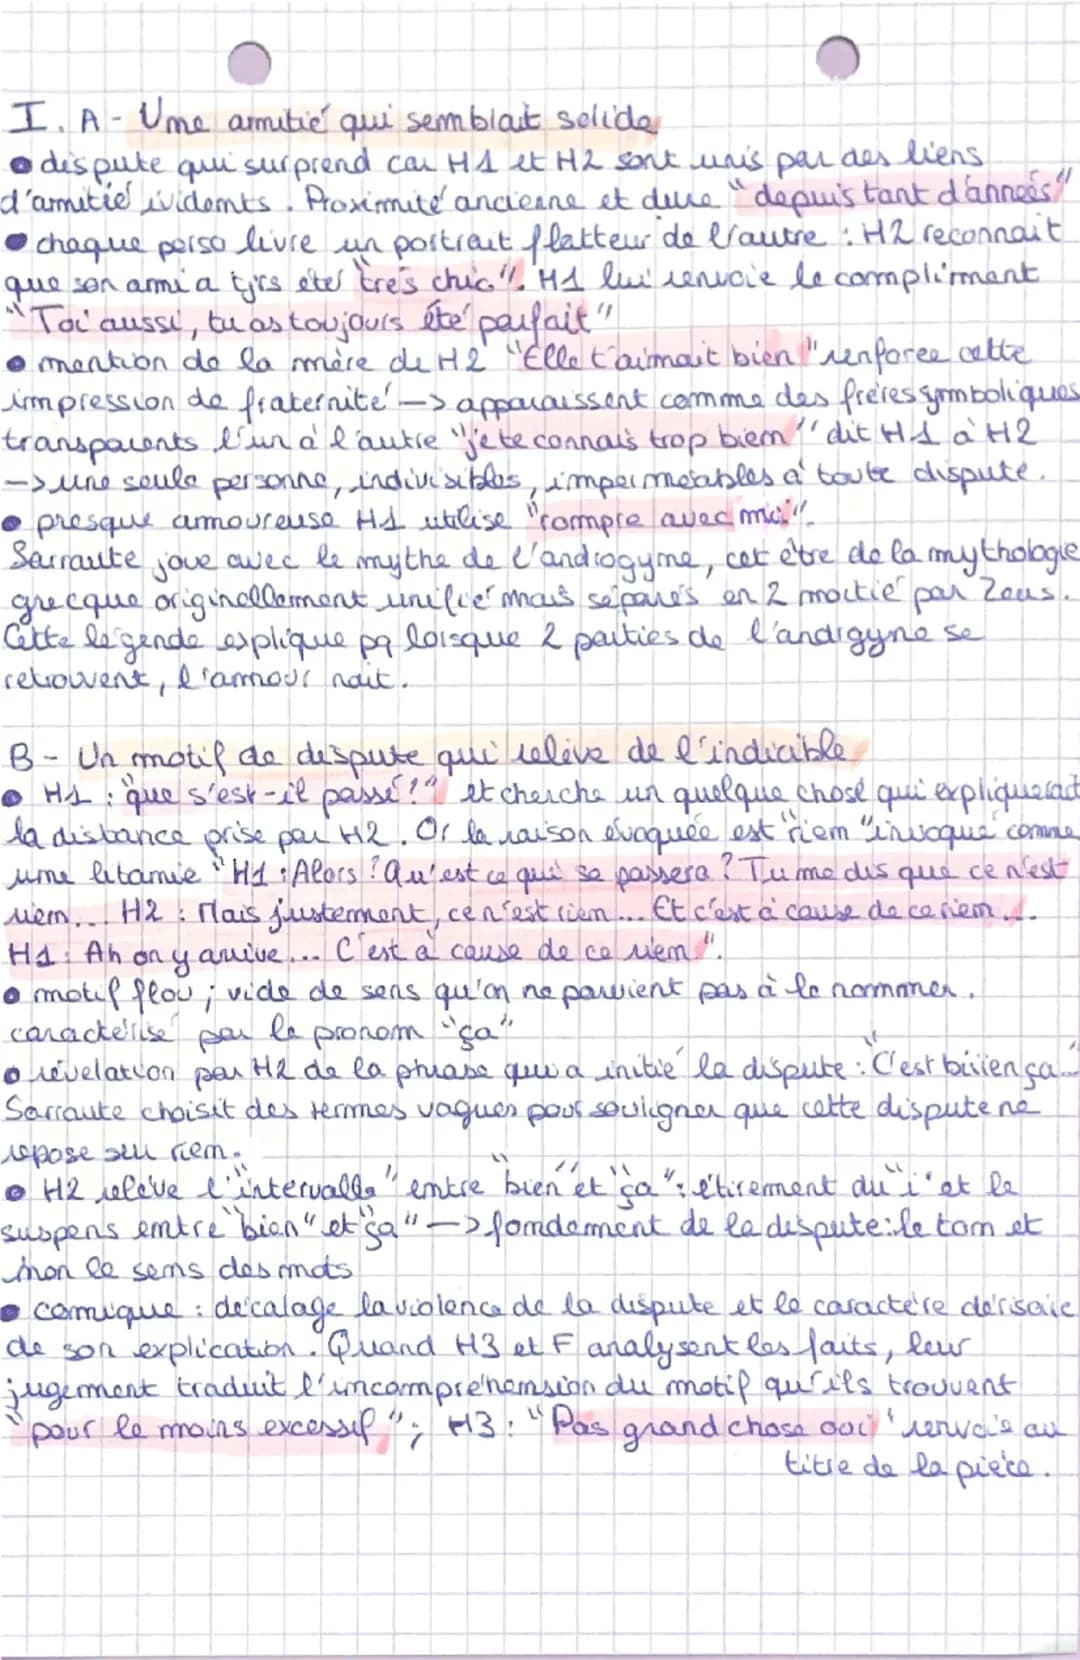 I. A - Une amitié qui semblait solide
• dispute qui surprend car H1 et H2 sont unis par des liens
d'amitié évidents. Proximité ancienne et dure "depuis tant d'années"
• chaque perso livre un portrait flatteur de l'autre : H2 reconnait
que son ami a tjrs été "très chic". H1 lui renvoie le compliment
"Toi aussi, tu as toujours été parfait"
• mention de la mère de H2 "Elle t'aimait bien" renforce cette
impression de fraternité —> apparaissent comme des frères symboliques
transparents l'un à l'autre "je te connais trop bien" dit H1 à H2
—> une seule personne, indivisibles, imperméables à toute dispute.
• presque amoureuse H1 utilise "rompre avec moi".
Sarraute joue avec le mythe de l'androgyne, cet être de la mythologie
grecque originellement unifié mais séparés en 2 moitié par Zeus.
Cette légende explique pq lorsque 2 parties de l'andigyne se
retrouvent, l'amour nait.
B - Un motif de dispute qui relève de l'indicible
• H1 : "que s'est-il passé ?" et cherche un quelque chose qui expliquerait
la distance prise par H2. Or la raison évoquée est "rien" invoqué comme
une litanie "H1 : Alors ? Qu'est ce qui se passera ? Tu me dis que ce n'est
rien... H2 : Mais justement, ce n'est rien... Et c'est à cause de ce rien...
H1 : Ah on y arrive... C'est à cause de ce rien".
• motif flou ; vide de sens qu'on ne parvient pas à le nommer.
caractérisé par le pronom "ça"
• révélation par H2 de la phrase qui a initié la dispute : "C'est biiien ça..."
Sarraute choisit des termes vagues pour souligner que cette dispute ne
repose sur rien.
• H2 relève l'"intervalle" entre "bien" et "ça" : étirement du "i" et le
suspens entre "bien" et "ça" —> fondement de la dispute : le ton et
non le sens des mots
• comique : décalage la violence de la dispute et le caractère dérisoire
de son explication. Quand H3 et F analysent les faits, leur
jugement traduit l'incompréhension du motif qu'ils trouvent
"pour le moins excessif" ; H3 : "Pas grand chose oui" renvois au
titre de la pièce.